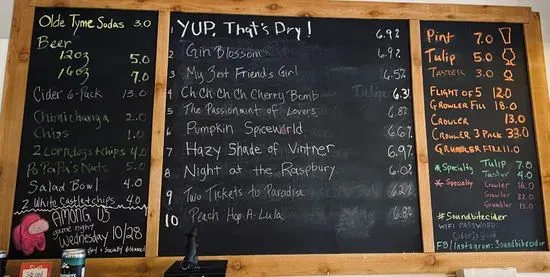 Olde Tyme Sodas 3.0
Beer
12oz 5.0
16oz 7.0
Cider 6-Pack 13.0
Chimichanga 2.0
Chips 1.0
2 Corndogs + chips 4.0
PoPaPa's Nuts 5.0
Salad Bowl 4.0
2 White Castle + chips 4.0
AMONG US
game night
Wednesday 10/28
1 YUP, That's Dry! 6.9%
2 Gin Blossom 6.9%
3 My Best Friend's Girl 6.5%
4 Ch Ch Ch Ch Cherry Bomb 6.3%
5 The Passionmint of Lovers 6.8%
6 Pumpkin Spiceworld 6.6%
7 Hazy Shade of Vintner 6.9%
8 Night at the Raspbury 6.0%
9 Two Tickets to Paradise 6.2%
10 Peach Hop-A-Lula 6.8%
Pint 7.0
Tulip 5.0
Taster 3.0
Flight of 5 12.0
Growler Fill 18.0
Crowler 13.0
Crowler 3 Pack 33.0
Grumbler Fill 11.0
*Specialty Tulip 7.0
Taster 4.0
*Specialty Crowler 16.0
Growler 22.0
Grumbler 13.0
#Soundbitecider
WIFI PASSWORD:
FB/Instagram: Soundbitecider